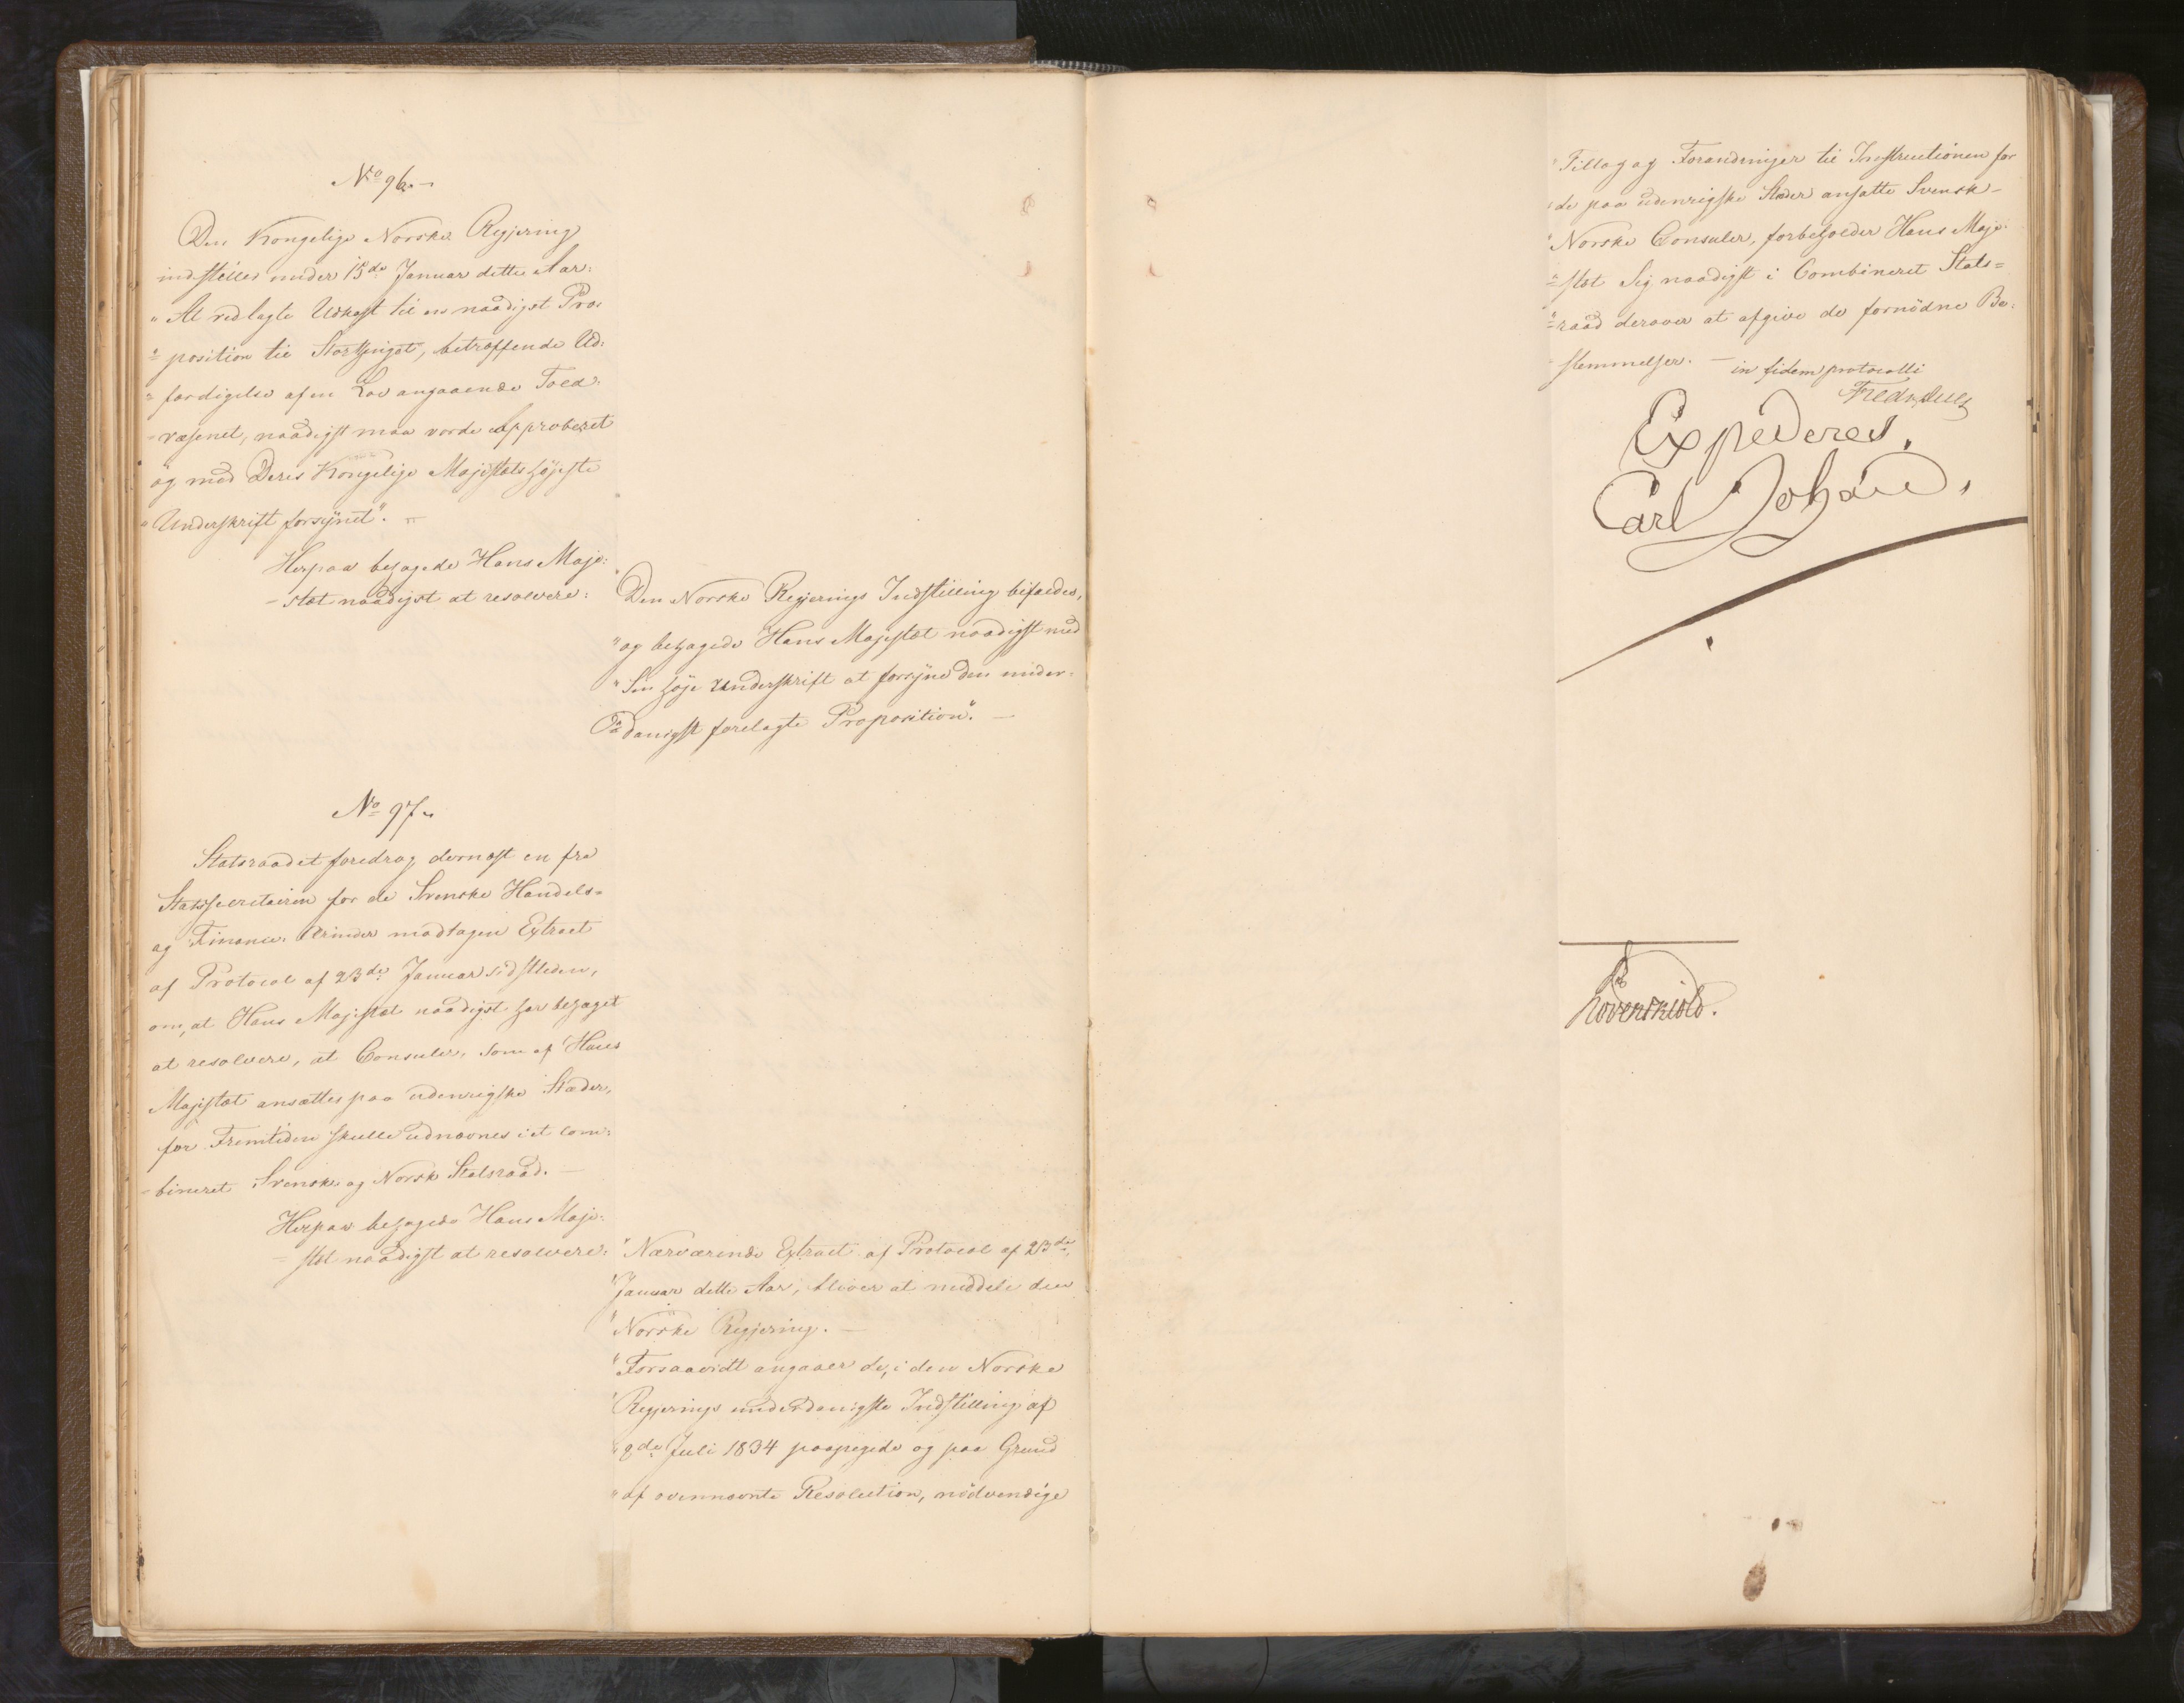 No 96.
Den Kongelige Norske Regjering
indstiller under 15de Januar dette Aar:
"At vedlagte Udkast til en naadigst Pro:
"position til Storthinget, betræffende Ud:
"færdigelse af en Lov angaaende Told:
væsenet, naadigst maa vorde approberet
og med Deres Kongelige Majestæts höjeste
"Underskrift forsynet". —
Herpaa behagede Hans Maje:
-stæt naadigst at resolvere:
Den Norske Regjerings Indstilling bifaldes,
"og behagede Hans Majestæt naadigst med
"Sin höje Underskrift at forsyne den under:
"danigst forelagte Proposition". —
No 97.
Statsraadet foredrog dernæst en fra
Statssecretairen for de Svenske Handels-
og Finance-Ærinder modtagen Extract
af Protocol af 23de Januar sidstleden,
om, at Hans Majestæt naadigst har behaget
at resolvere, at Consuler, som af Hans
Majestæt ansættes paa udenrigske Stæder,
for Fremtiden skulle udnævnes i et com:
-bineret Svensk og Norsk Statsraad. —
Herpaa behagede Hans Maje:
-stæt naadigst at resolvere:
"Nærværende Extract af Protocol af 23de
"Januar dette Aar, bliver at meddele den
"Norske Regjering. —
"Forsaavidt angaaer de, i den Norske
"Regjerings underdanigste Indstilling af
"2de Juli 1834 paapegede og paa Grund
"af ovennævnte Resolution, nödvendige
"Tillæg og Forandringer til Instructionen for
"de paa udenrigske Stæder ansatte Svensk-
"Norske Consuler, forbeholder Hans Maje-
"stæt Sig naadigst i Combineret Stats=
"raad derover at afgive de fornödne Be:
-stemmelser. — in fidem protocolli
Fredr. Due
Expederes.
Carl Johan.
Lövenskiold.